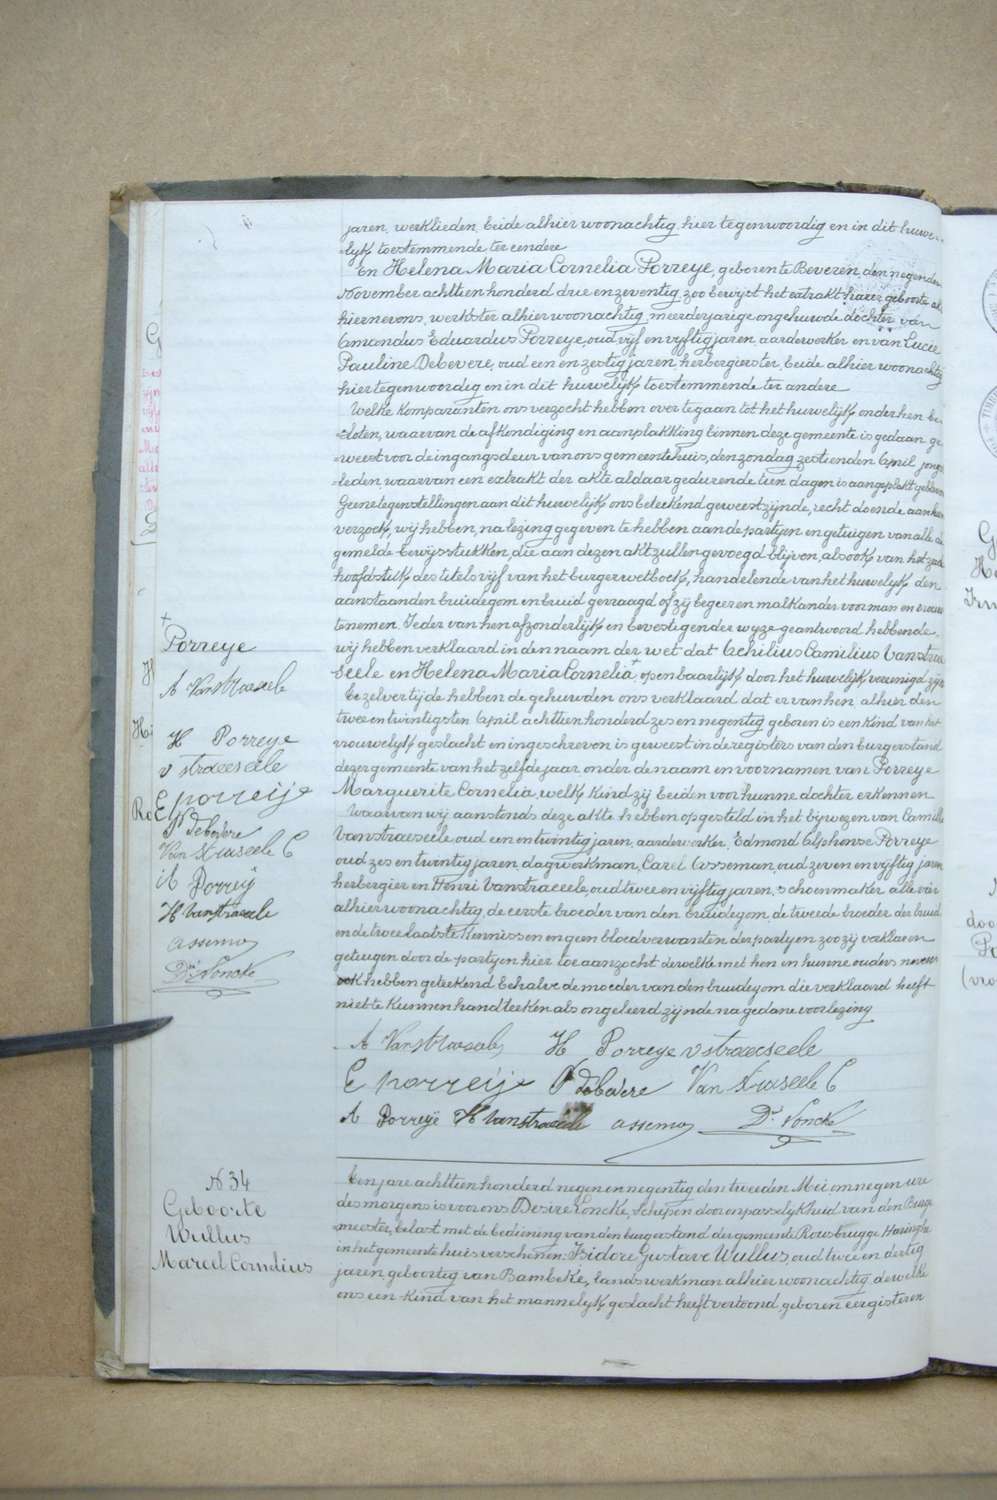 jaren, werklieden, beide alhier woonachtig, hier tegenwoordig en in dit huwe-
lijk toestemmende ter eendere
En Helena Maria Cornelia Porreye, geboren te Beveren, den negenden
November achttien honderd drie en zeventig, zoo bewijst het extrakt harer geboorte als
hiernevens, werkster alhier woonachtig, meerderjarige ongehuwde dochter van
Amandus Eduardus Porreye, oud vijf en vijftig jaren, aardewerker en van Lucie
Pauline Debevere, oud een en zestig jaren, herbergierster, beide alhier woonachtig
hier tegenwoordig en in dit huwelijk toestemmende ter andere
Welke komparanten ons verzocht hebben over te gaan tot het huwelijk onder hen be-
sloten, waarvan de afkondiging en aanplakking binnen deze gemeente is gedaan ge-
weest voor de ingangsdeur van ons gemeentehuis, den zondag zestienden April jongst-
leden, waarvan een extrakt der akte aldaar gedurende tien dagen is aangeplakt gebleven
Geene tegenstellingen aan dit huwelijk ons beteekend geweest zijnde, recht doende aan hun
verzoek, wij hebben, na lezing gegeven te hebben aan de partijen en getuigen van alle de
gemelde bewijsstukken, die aan dezen akt zullen gevoegd blijven, alsook van het zesde
hoofdstuk des titels vijf van het burgerwetboek, handelende van het huwelijk den
aanstaanden bruidegom en bruid gevraagd of zij begeeren malkander voor man en vrouw
te nemen. Ieder van hen afzonderlijk en bevestigender wyze geantwoord hebbende,
wij hebben verklaard in den naam der wet dat Achilius Camilius Vanstrae-
seele en Helena Maria Cornelia + openbaarlijk door het huwelijk vereenigd zijn
Tezelvertijde hebben de gehuwden ons verklaard dat er van hen, alhier den
twee en twintigsten April achttien honderd zes en negentig geboren is een kind van het
vrouwelijk geslacht en ingeschreven is geweest in de registers van den burgerstand
dezer gemeente van het zelfde jaar onder de naam en voornamen van Porreye
Marguerite Cornelia, welk kind zij beiden voor hunne dochter erkennen
Waarvan wij aanstonds deze akte hebben opgesteld in het bijwezen van Camille
Vanstraeseele oud een en twintig jaren, aardewerker, Edmond Alphonse Porreye
oud zes en twintig jaren dagwerkman, Carel Asseman, oud zeven en vyftig jaren
herbergier en Henri Vanstraeseele, oud twee en vijftig jaren, schoenmaker alle vier
alhier woonachtig, de eerste broeder van den bruidegom de tweede broeder der bruid
en de twee laatste kennissen en geen bloedverwanten der partyen zoo zij verklaren
getuigen door de partyen hier toe aanzocht dewelke met hen en hunne ouders nevens
ook hebben geteekend behalve de moeder van den bruidegom die verklaard heeft
niet te kunnen handteeken als ongeleerd zijnde na gedane voorlezing
A Vanstraeseele H Porreye v straeseele
E Porreije P Debevere Van straseele C
A Porreye H Vanstraeseele asseman Dre Loncke
+
Porreye
A Vanstraeseele
H Porreye
v straeseele
E porreije
P Debevere
Van straseele C
A Porreÿ
H Vanstraeseele
asseman
Dré Loncke
N 34
Geboorte
Wullus
Marcel Cornelius
Ten jare achttien honderd negen en negentig den tweeden Mei om negen ure
des morgens is voor ons Desiré Loncke, Schepen door onpasselykheid van den Burge-
meester, belast met de bediening van den burgerstand der gemeente Rousbrugge Haringhe
in het gemeente huis verschenen: Isidore Gustave Wullus, oud twee en dertig
jaren geboortig van Bambeke, landswerkman alhier woonachtig dewelke
ons een kind van het mannelyk geslacht heeft vertoond, geboren eergisteren